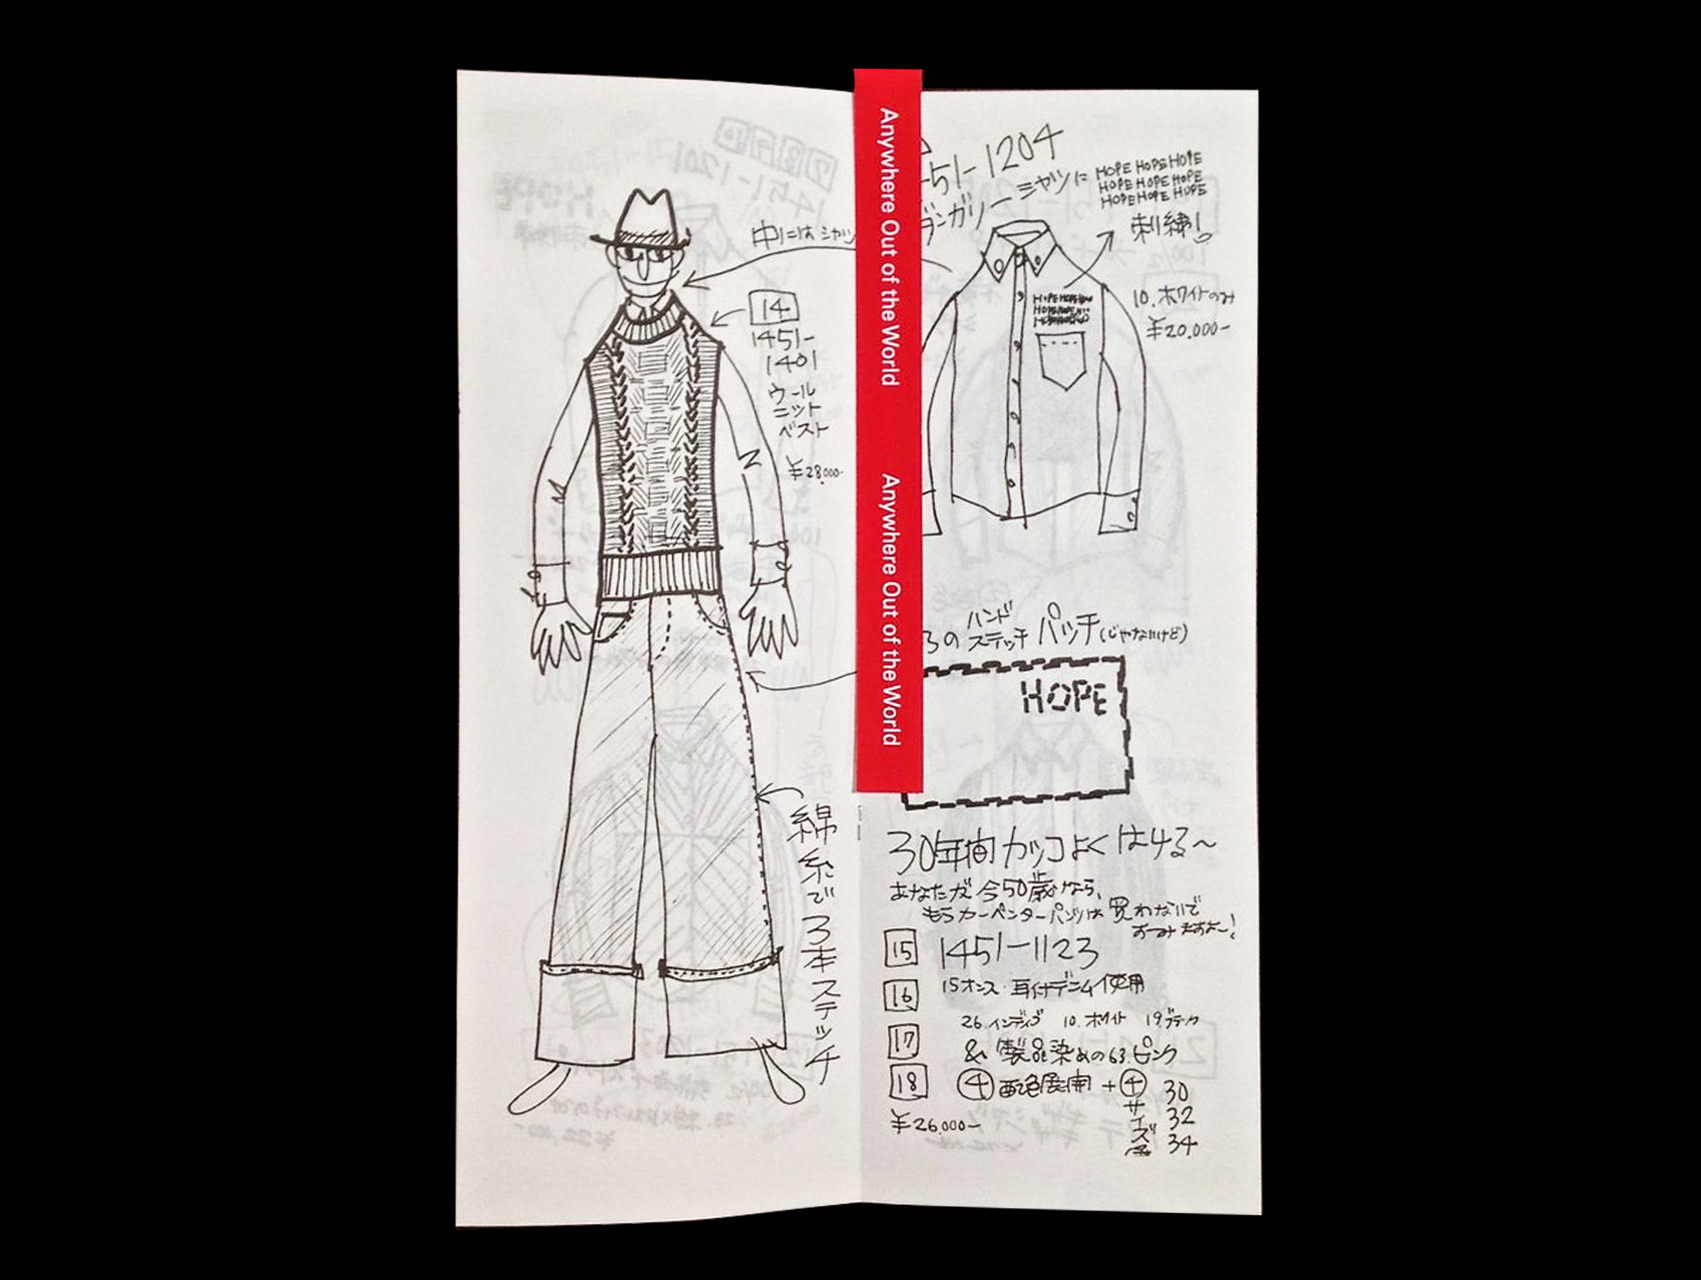 中にはシャツ
14
1451-
1401
ウール
ニット
ベスト
¥28,000-
綿糸で3本ステッチ
Anywhere Out of the World
Anywhere Out of the World
451-1204
ダンガリーシャツに
HOPE HOPE HOPE
HOPE HOPE HOPE
HOPE HOPE HOPE
刺繍!
10.ホワイトのみ
¥20,000-
ろの
ハンド
ステッチ
パッチ(じゃないけど)
HOPE
30年間カッコよくはける〜
あなたが今50歳なら、
もうカーペンターパンツは買わないで
すみますよー!
15
1451-1123
16
15オンス・耳付デニム使用
26.インディゴ 10.ホワイト 19.ブラック
17
& 製品染めの63.ピンク
18
④配色展開+④サイズ
30
32
34
¥26,000-